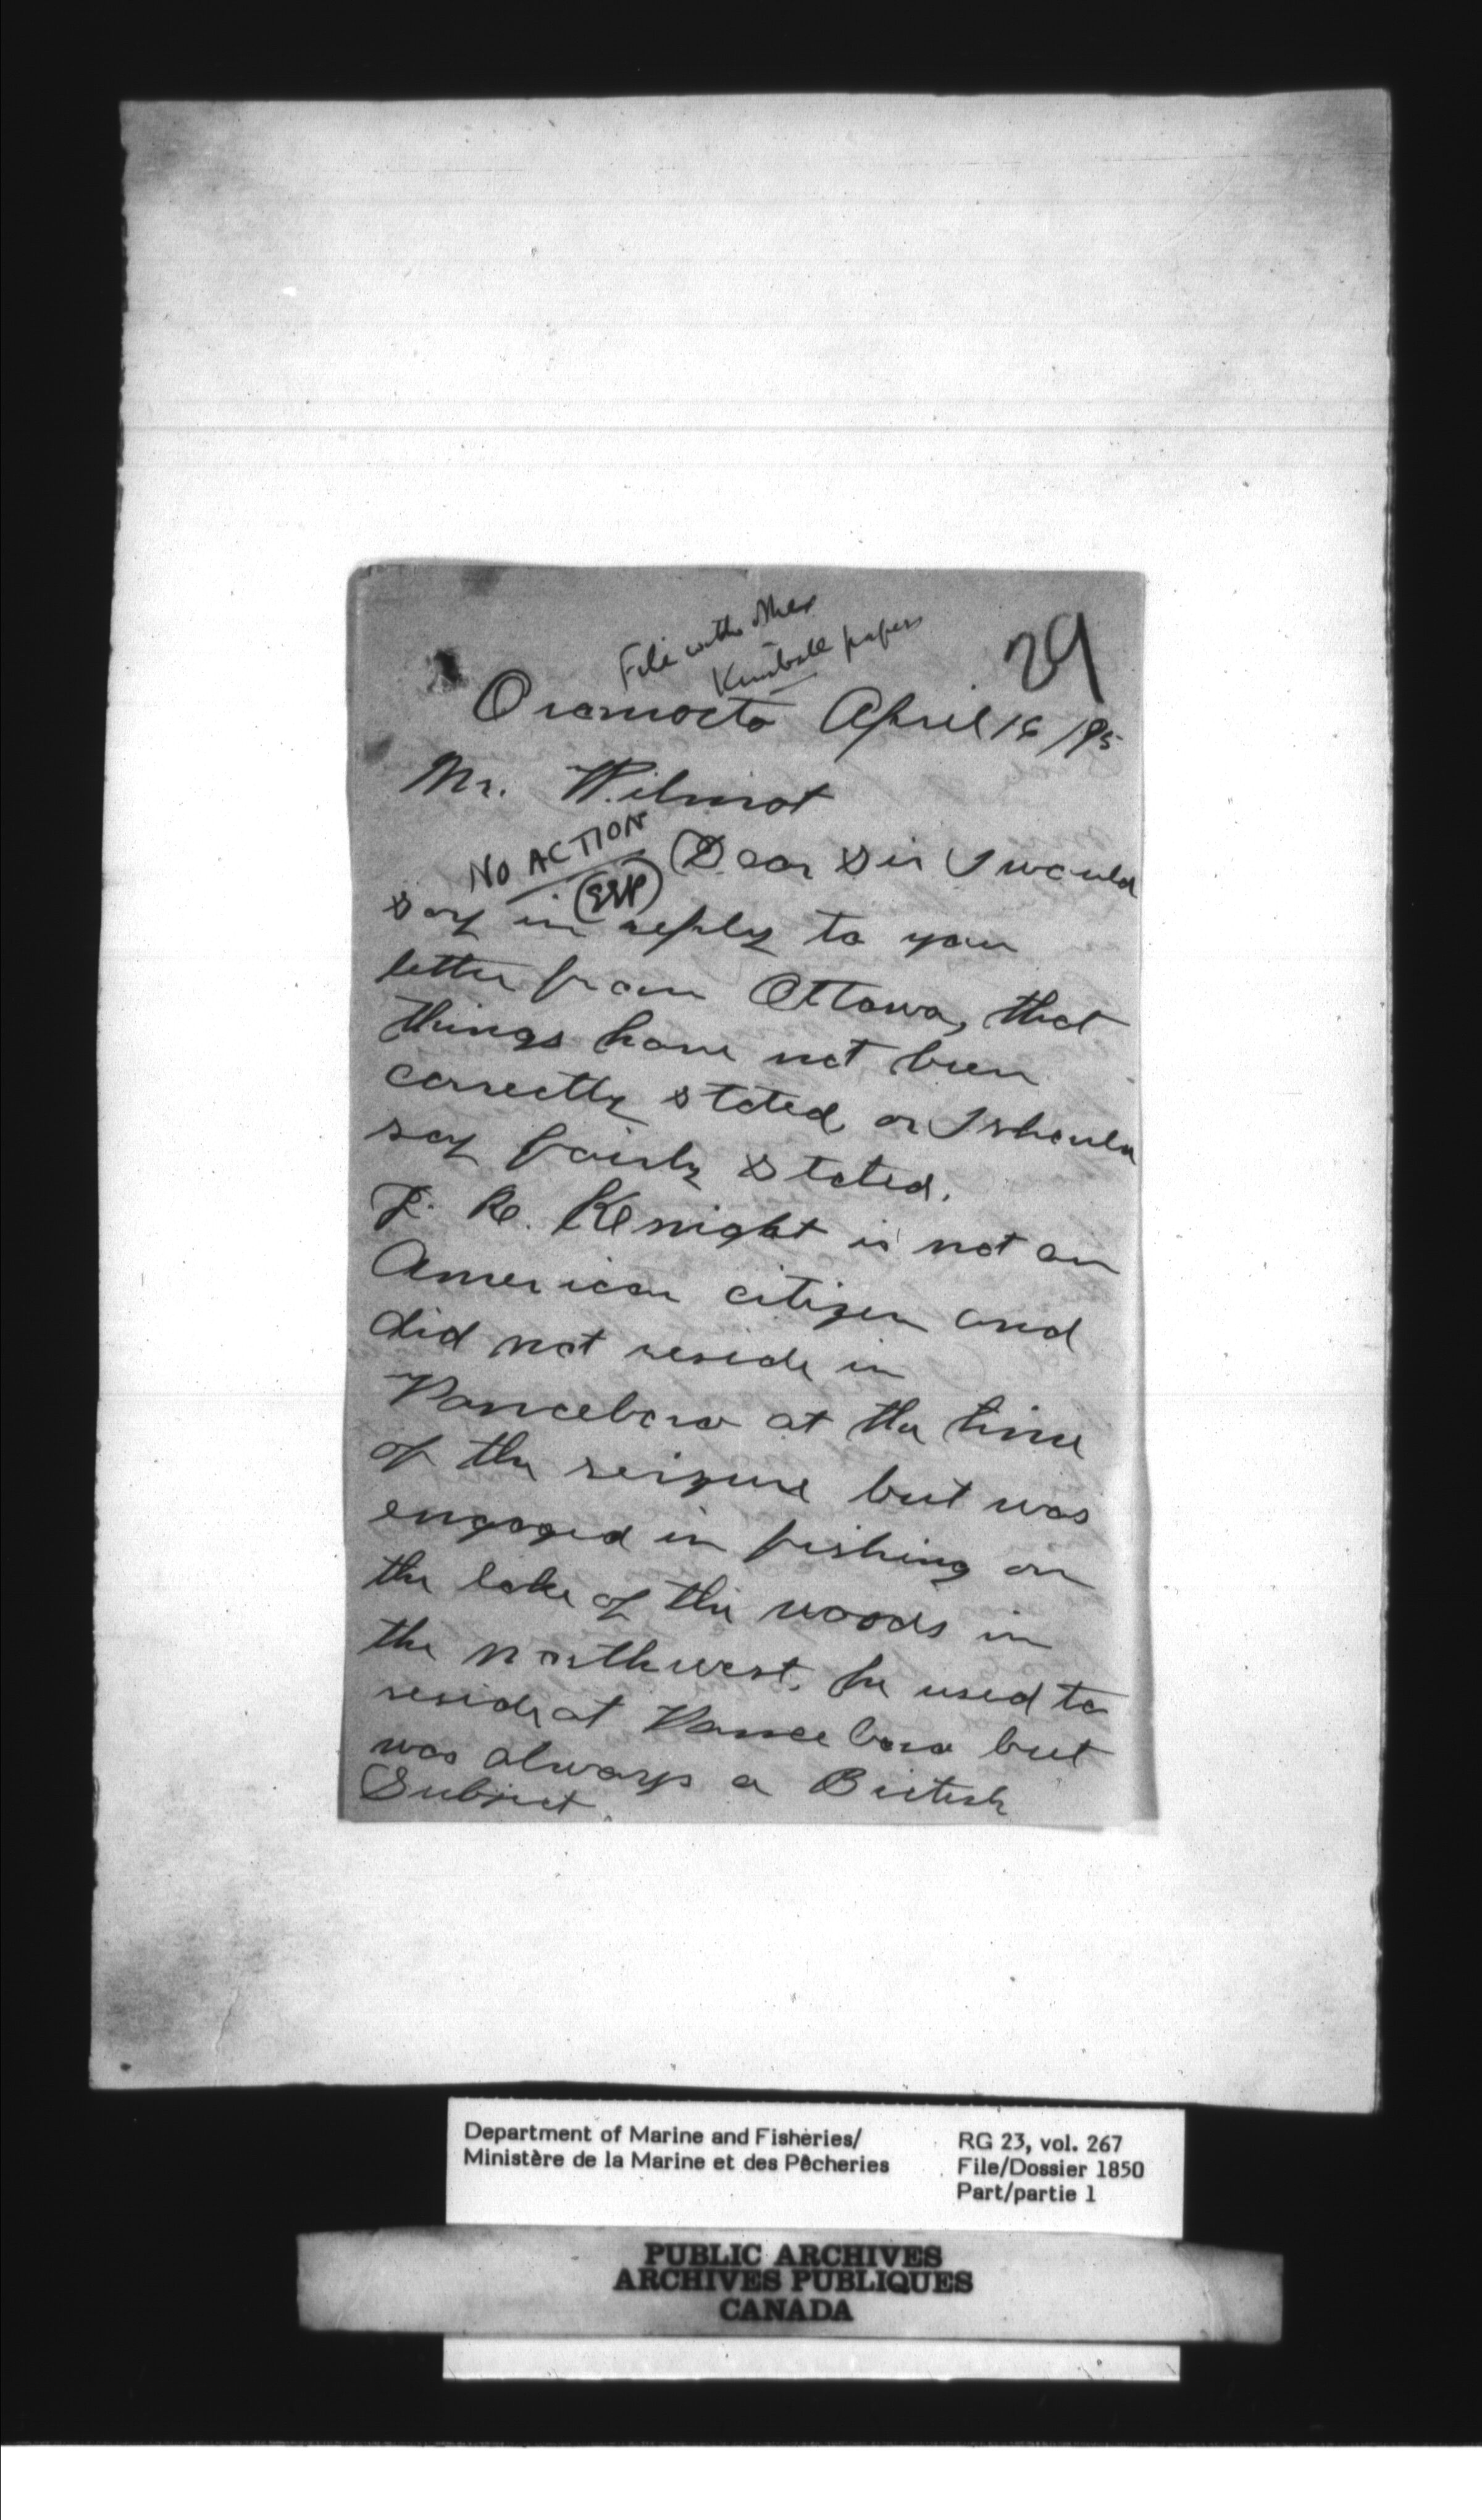 File with other
Kimball papers
29
Oromocto April 16 /95
Mr. Wilmot
NO ACTION
Dear Sir I would
say in reply to your
letter from Ottawa, that
things have not been
correctly stated, or I should
say fairly stated.
L. R. Knight is not an
American citizen and
did not reside in
Vanceboro at the time
of the seizure but was
engaged in fishing on
the lake of the woods in
the northwest. he used to
reside at Vanceboro but
was always a British
Subject.
Department of Marine and Fisheries/
Ministère de la Marine et des Pêcheries
RG 23, vol. 267
File/Dossier 1850
Part/partie 1
PUBLIC ARCHIVES
ARCHIVES PUBLIQUES
CANADA